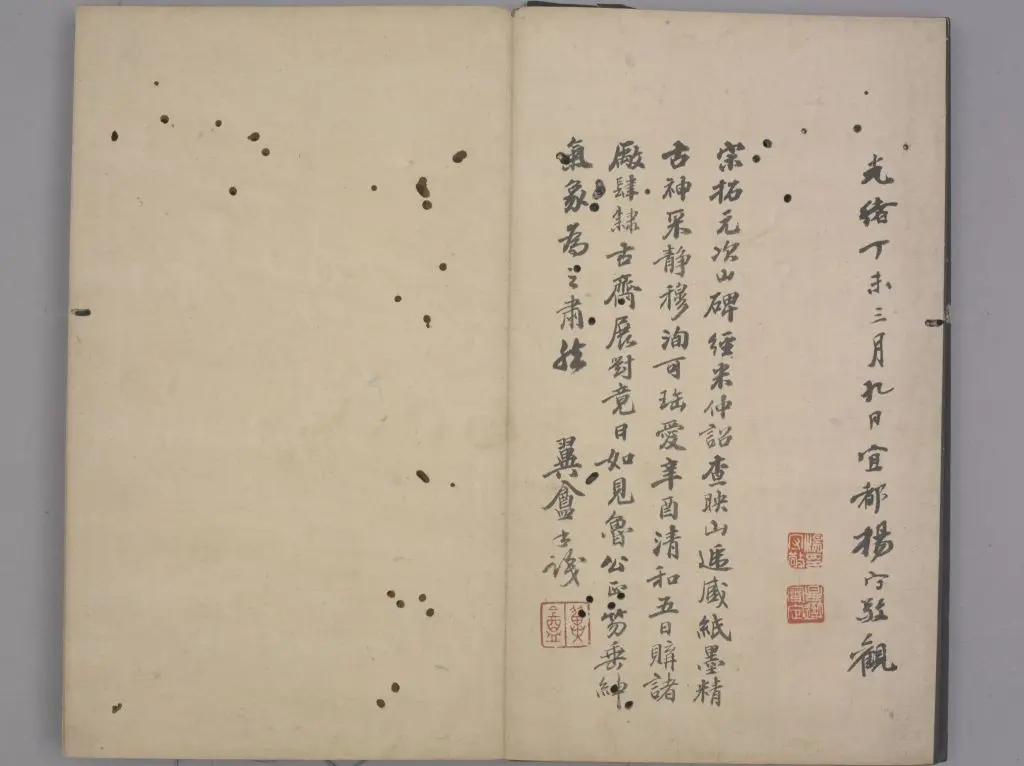 光緒丁未三月九日宜都楊守敬觀
宋拓元次山碑經米仲詔查映山遞藏紙墨精
古神采靜穆洵可珤愛辛酉清和五日購諸
廠肆隸古齋展對竟日如見魯公正笏垂紳
氣象為之肅然
翼盦志